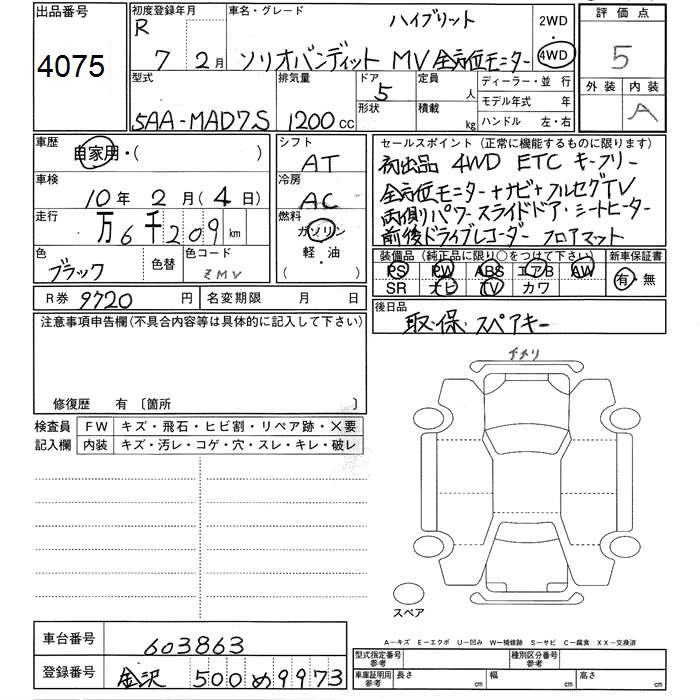 出品番号 初度登録年月 車名・グレード ハイブリット 2WD ・ 4WD 評価点
4075 R 7 2月 ソリオバンディット MV 全方位モニター 5
型式 排気量 ドア 定員 人 ディーラー・並行 外装 内装
5AA-MAD7S 1200cc 5 形状 積載 kg モデル年式 年 A
ハンドル 左・右
車歴 自家用・( ) シフト AT セールスポイント (正常に機能するものに限ります)
車検 10年 2月(4日) 冷房 AC 初出品 4WD ETC キーフリー
全方位モニター+ナビ+フルセグTV
走行 万6千209km 燃料 ガソリン 軽・油 両側パワースライドドア・シートヒーター
前後ドライブレコーダー フロアマット
色 ブラック 色替 色コード ZMV 装備品 (純正品に限り○をつけて下さい) 新車保証書
PS PW ABS エアB AW 有・無
R券 9720 円 名変期限 月 日 SR ナビ TV カワ
注意事項申告欄(不具合内容等は具体的に記入して下さい) 後日品
取・保・スペアキー
修復歴 有 〔箇所 〕
検査員 FW キズ・飛石・ヒビ割・リペア跡・×要
記入欄 内装 キズ・汚レ・コゲ・穴・スレ・キレ・破レ
スペア
A-キズ E-エクボ U-凹み W-補修跡 S-サビ C-腐食 XX-交換済
車台番号 603863 型式指定番号 参考 種別区分番号 参考
登録番号 金沢 500 め 9973 車庫証明用 参考 長さ cm 幅 cm 高さ cm